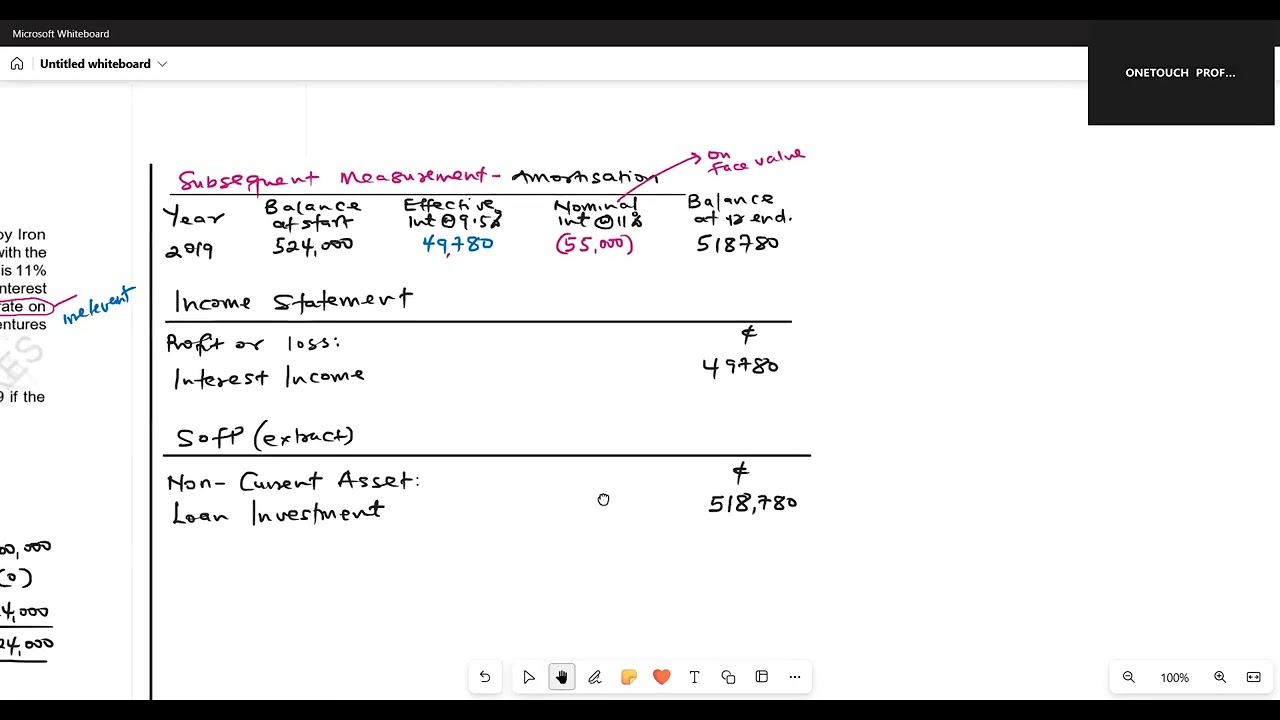 Microsoft Whiteboard
Untitled whiteboard
ONETOUCH PROF...
oy Iron
with the
is 11%
nterest
ate on
entures
irrelevant
9 if the
00,000
(0)
4,000
24,000
Subsequent Measurement - Amortisation
on
face value
Year Balance at start Effective Int @ 9.5% Nominal Int @ 11% Balance at yr end.
2019 524,000 49,780 (55,000) 518780
Income Statement
¢
Profit or loss:
Interest Income 49780
SoFP (extract)
¢
Non-Current Asset:
Loan Investment 518,780
100%